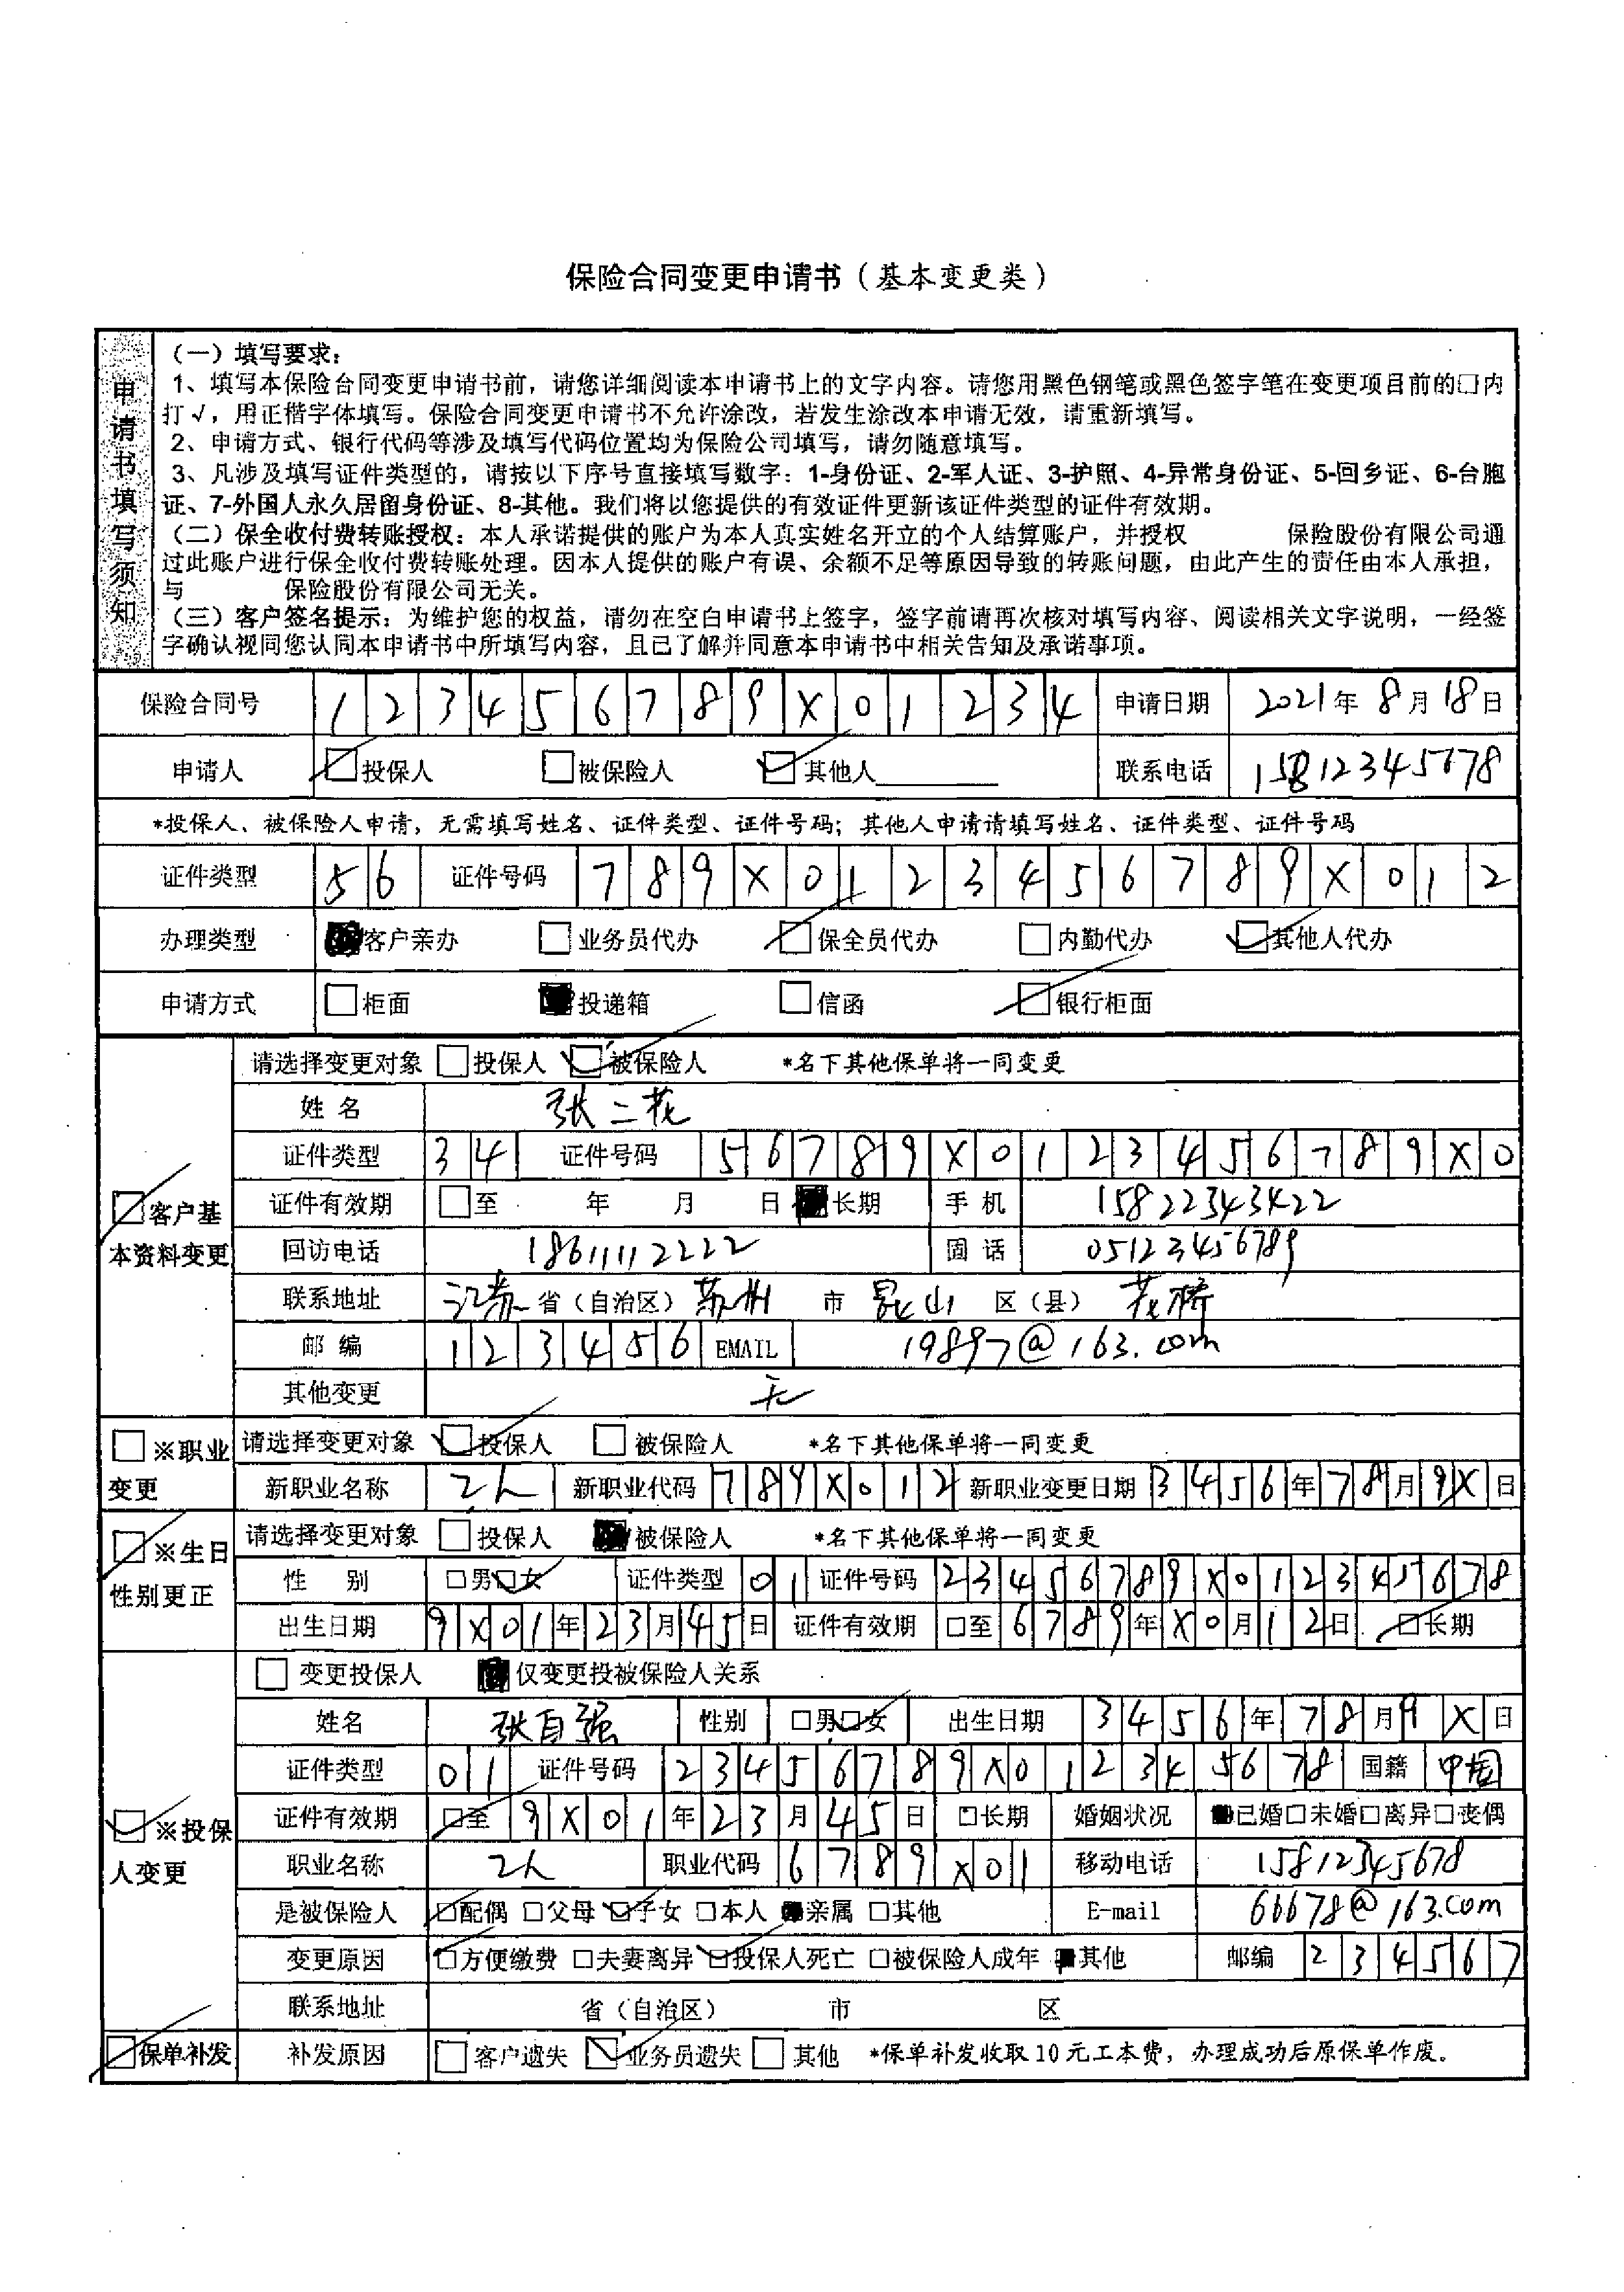 保险合同变更申请书（基本变更类）
申请书填写须知
（一）填写要求：
1、填写本保险合同变更申请书前，请您详细阅读本申请书上的文字内容。请您用黑色钢笔或黑色签字笔在变更项目前的□内
打√，用正楷字体填写。保险合同变更申请书不允许涂改，若发生涂改本申请无效，请重新填写。
2、申请方式、银行代码等涉及填写代码位置均为保险公司填写，请勿随意填写。
3、凡涉及填写证件类型的，请按以下序号直接填写数字：1-身份证、2-军人证、3-护照、4-异常身份证、5-回乡证、6-台胞
证、7-外国人永久居留身份证、8-其他。我们将以您提供的有效证件更新该证件类型的证件有效期。
（二）保全收付费转账授权：本人承诺提供的账户为本人真实姓名开立的个人结算账户，并授权 保险股份有限公司通
过此账户进行保全收付费转账处理。因本人提供的账户有误、余额不足等原因导致的转账问题，由此产生的责任由本人承担，
与 保险股份有限公司无关。
（三）客户签名提示：为维护您的权益，请勿在空白申请书上签字，签字前请再次核对填写内容、阅读相关文字说明，一经签
字确认视同您认同本申请书中所填写内容，且已了解并同意本申请书中相关告知及承诺事项。
保险合同号 123456789X01234 申请日期 2021年8月18日
申请人 □投保人 □被保险人 □其他人 联系电话 15812345678
*投保人、被保险人申请，无需填写姓名、证件类型、证件号码；其他人申请请填写姓名、证件类型、证件号码
证件类型 56 证件号码 789X0123456789X012
办理类型 客户亲办 □业务员代办 □保全员代办 □内勤代办 □其他人代办
申请方式 □柜面 投递箱 □信函 □银行柜面
□客户基本资料变更
请选择变更对象 □投保人 □被保险人 *名下其他保单将一同变更
姓名 张二花
证件类型 34 证件号码 56789X0123456789X0
证件有效期 □至 年 月 日 长期 手机 15822343422
回访电话 18611112222 固话 05123456789
联系地址 江苏省（自治区）苏州市 昆山 区（县） 花桥
邮编 123456 EMAIL 19897@163.com
其他变更 无
□※职业变更
请选择变更对象 □投保人 □被保险人 *名下其他保单将一同变更
新职业名称 工人 新职业代码 789X012 新职业变更日期 3456年78月9X日
□※生日性别更正
请选择变更对象 □投保人 被保险人 *名下其他保单将一同变更
性别 □男□女 证件类型 01 证件号码 23456789X012345678
出生日期 9X01年23月45日 证件有效期 □至 6789年X0月12日 □长期
□※投保人变更
□变更投保人 仅变更投被保险人关系
姓名 张自强 性别 □男□女 出生日期 3456年78月9X日
证件类型 01 证件号码 23456789X012345678 国籍 中国
证件有效期 □至 9X01年23月45日 □长期 婚姻状况 已婚□未婚□离异□丧偶
职业名称 工人 职业代码 6789X01 移动电话 15812345678
是被保险人 □配偶 □父母 □子女 □本人 亲属 □其他 E-mail 66678@163.com
变更原因 □方便缴费 □夫妻离异 □投保人死亡 □被保险人成年 其他 邮编 234567
联系地址 省（自治区） 市 区
□保单补发 补发原因 □客户遗失 □业务员遗失 □其他 *保单补发收取10元工本费，办理成功后原保单作废。